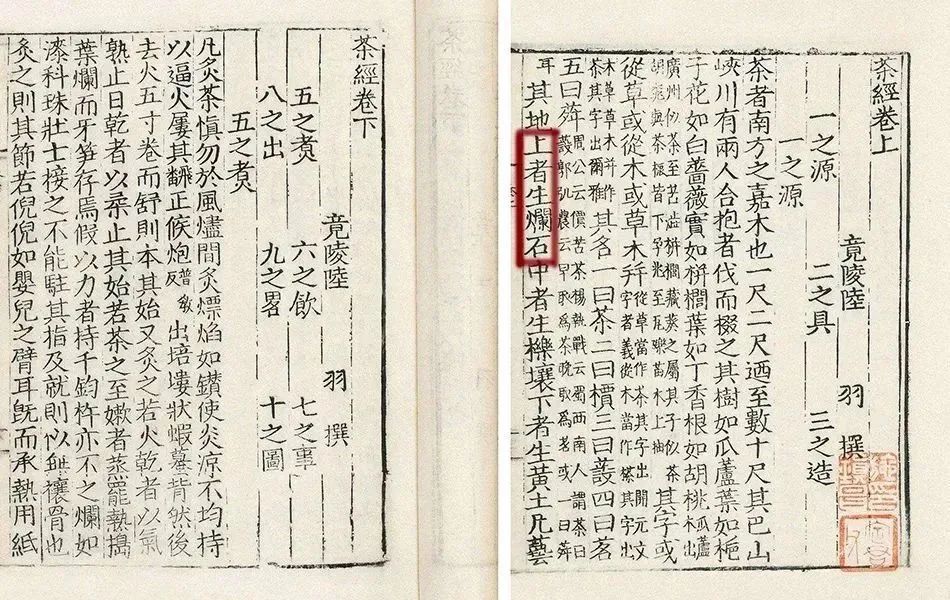 茶經卷上
竟陵陸 羽 撰
一之源 二之具 三之造
一之源
茶者南方之嘉木也一尺二尺迺至數十尺其巴山
峽川有兩人合抱者伐而掇之其樹如瓜蘆葉如梔
子花如白薔薇實如栟櫚葉如丁香根如胡桃瓜蘆木出
廣州似茶至苦澁栟櫚蒲葵之屬其子似茶胡桃與茶根皆下孕兆至瓦礫苗木上抽其字或
從草或從木或草木并從草當作茶其字出開元文字者義從木當作㮆其字出
本草草木并作荼其字出爾雅其名一曰茶二曰檟三曰蔎四曰茗
五曰荈周公云檟苦茶楊執戟云蜀西南人謂茶曰蔎郭弘農云早取爲茶晚取爲茗或一曰荈
耳其地上者生爛石中者生櫟壤下者生黃土凡藝
茶經卷下
竟陵陸 羽 撰
五之煑 六之飲 七之事
八之出 九之畧 十之圖
五之煑
凡炙茶慎勿於風燼間炙熛焰如鑽使炎涼不均持
以逼火屢其飜正候炮普教反出培塿狀蝦蟇背然後
去火五寸卷而舒則本其始又炙之若火乾者以氣
熟止日乾者以柔止其始若茶之至嫩者蒸罷熱搗
葉爛而牙笋存焉假以力者持千鈞杵亦不之爛如
漆科珠壯士接之不能駐其指及就則似無禳骨也
炙之則其節若倪倪如嬰兒之臂耳既而承熱用紙